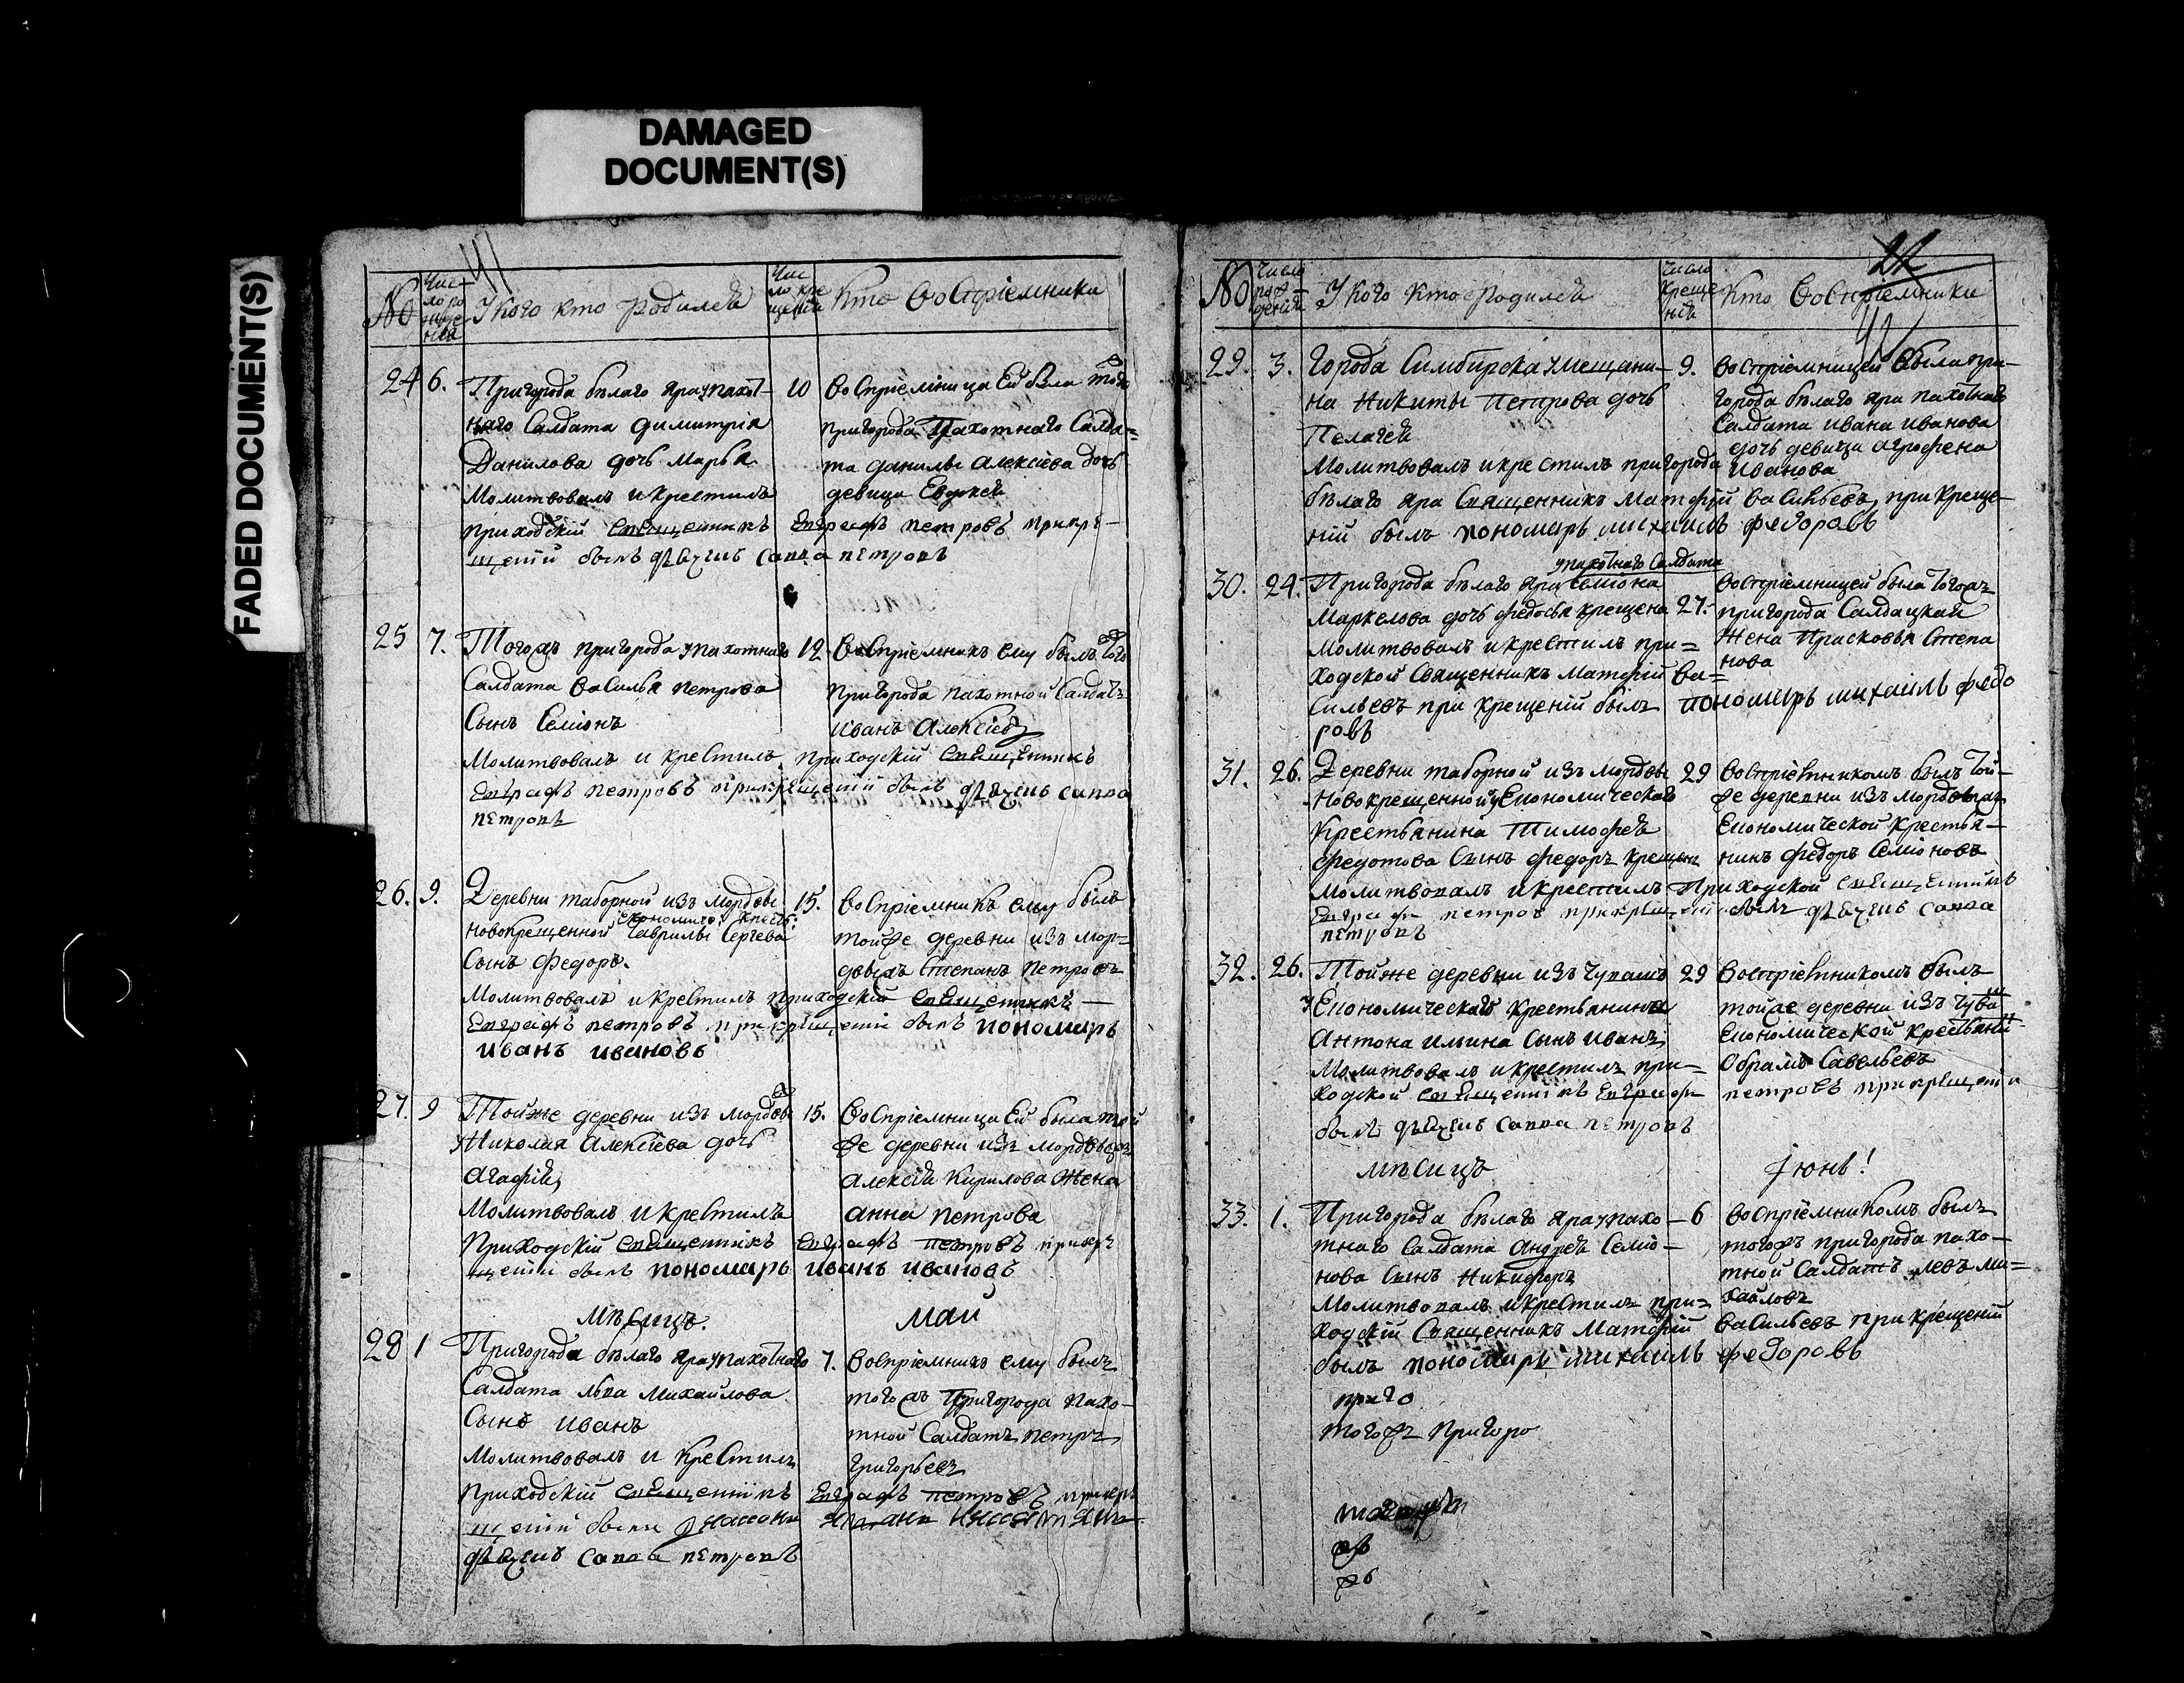 DAMAGED
DOCUMENT(S)
FADED DOCUMENT(S)
41
No
Чис-
ло ро
жде
нія
У кого кто родилсѧ
Чис
ло кре
щеній
Кто восприемники
24 6.
Пригорода бѣлаго яра у пахот-
наго Салдата димитрія
Данилова дочь Марья
Молитвовалъ и крестилъ
приходскій священникъ Евграфъ петровъ при кре-
щеніи былъ дьячекъ савва петровъ
10
восприемница Ей была тогож
пригорода Пахотнаго Салда=
та данилы алексіева дочь
девица Евдокея
25 7.
Тогожъ пригорода у пахотнаго
Салдата василья петрова
Сынъ Семіонъ
Молитвовалъ и крестилъ приходскій священникъ
Евграфъ петровъ при крещеніи былъ дьячекъ савва
петровъ
12
восприемникъ ему былъ того ж
пригорода пахотной Салдатъ
иванъ алексіевъ
26. 9.
Деревни таборной изъ мордвы
економичес: крестья:
новокрещенной Гаврилы Сергѣева
Сынъ Федоръ.
Молитвовалъ и крестилъ приходскій священникъ —
Евграфъ петровъ при крещеніи былъ пономарь
иванъ ивановъ
15.
восприемникъ ему былъ
тойже деревни изъ мор=
двыжъ Степанъ Петровъ
27. 9
Тойже деревни изъ мордвы ж
у Николая алексіева дочь
агафія
Молитвовалъ и крестилъ
приходскій священникъ Евграфъ петровъ при кре
щеніи былъ пономарь иванъ ивановъ
15.
восприемница Ей была той
же деревни изъ мордвы ж
алексія Кирилова жена
анна петрова
Мѣсицъ. маи
28 1
Пригорода бѣлаго яра у пахотнаго
Салдата льва михайлова
Сынъ иванъ
Молитвовалъ и крестилъ
приходскій священникъ Евграфъ петровъ при кре
щеніи были
дьячекъ савва петровъ
7.
восприемникъ ему былъ
тогожъ Пригорода пахо-
тной Салдатъ петръ
григорьевъ
22
42
No
Число
рож-
деній
У кого кто родилсѧ
Число
креще
ніѧ
Кто восприемники
29. 3.
Города Симбирска у мещани-
на Никиты петрова дочь
Пелагея
Молитвовалъ и крестилъ пригорода
бѣлаго яра Священникъ матфій васильевъ, при креще-
ній былъ пономарь михаилъ федоровъ
9.
восприемницей была при-
города бѣлаго яра пахотнаго
Салдата ивана иванова
дочь девица агрофена
иванова
30. 24.
у пахотнаго Салдата
Пригорода бѣлаго яра Семіона
Маркелова дочь федосья крещена
Молитвовалъ и крестилъ при=
ходской Священникъ матфій ва=
сильевъ при крещеній былъ пономарь михаилъ федо
ровъ
27.
восприемницей была тогожъ
пригорода Салдацкая
Жена Прасковья Степа
нова
31. 26.
Деревни таборной изъ мордвы
новокрещенной у Економическаго
крестьянина Тимофея
федотова Сынъ федоръ крещен
молитвовалъ и крестилъ Приходской священникъ
Евграфъ петровъ при крещеніи былъ дьячекъ савва
петровъ
29
восприемникомъ былъ той-
же деревни изъ мордвы ж
Економической Крестья-
нинъ федоръ Семіоновъ
32. 26.
Тойже деревни изъ чувашъ
у Економическаго крестьянина
антона ильина Сынъ иванъ
Молитвовалъ и крестилъ при=
ходской священникъ Евграфъ петровъ при крещеніи
былъ дьячекъ савва петровъ
29
восприемникомъ былъ
тойже деревни изъ чуваш
Економической крестьянин
Обрамъ Савельевъ
мѣсицъ іюнь!
33. 1.
Пригорода бѣлаго яра у пахо-
тнаго Салдата андрея Семіо-
нова Сынъ Никифоръ
Молитвовалъ и крестилъ при=
ходскій Священникъ Матфій васильевъ при крещеній
былъ пономарь михаилъ федоровъ
6
восприемникомъ былъ
тогожъ пригорода пахо-
тной Салдатъ левъ ми=
хайловъ
приго
тогожъ пригоро